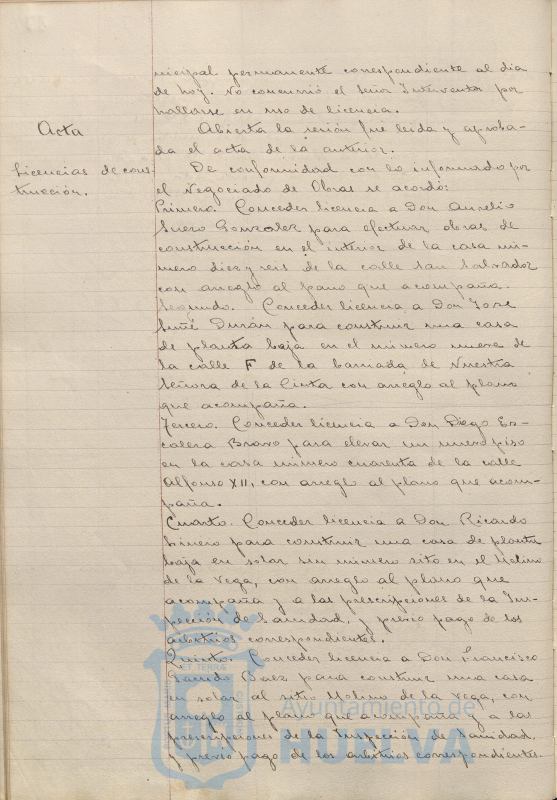 nicipal permanente correspondiente al dia
de hoy. No concurrió el Señor Interventor por
hallarse en uso de licencia.
Acta
Abierta la sesión fué leida y aproba-
da el acta de la anterior.
Licencias de cons-
trucción.
De conformidad con lo informado por
el Negociado de Obras se acordó:
Primero. Conceder licencia a Don Aurelio
Suero Gonzalez para efectuar obras de
construcción en el interior de la casa nú-
mero diez y seis de la calle San Salvador
con arreglo al plano que acompaña.
Segundo. Conceder licencia a Don José
Suñé Durán para construir una casa
de planta baja en el número nueve de
la calle F de la barriada de Nuestra
Señora de la Cinta con arreglo al plano
que acompaña.
Tercero. Conceder licencia a Don Diego Es-
calera Bravo para elevar un nuevo piso
en la casa número cuarenta de la calle
Alfonso XII, con arreglo al plano que acom-
paña.
Cuarto. Conceder licencia a Don Ricardo
Linero para construir una casa de planta
baja en solar sin número sito en el Molino
de la Vega, con arreglo al plano que
acompaña y a las prescripciones de la Ins-
pección de Sanidad, y previo pago de los
arbitrios correspondientes.
Quinto. Conceder licencia a Don Francisco
Garrido Baez para construir una casa
en solar al sitio Molino de la Vega, con
arreglo al plano que acompaña y a las
prescripciones de la Inspección de Sanidad,
y previo pago de los arbitrios correspondientes.
ET TERRAE
Ayuntamiento de
HUELVA